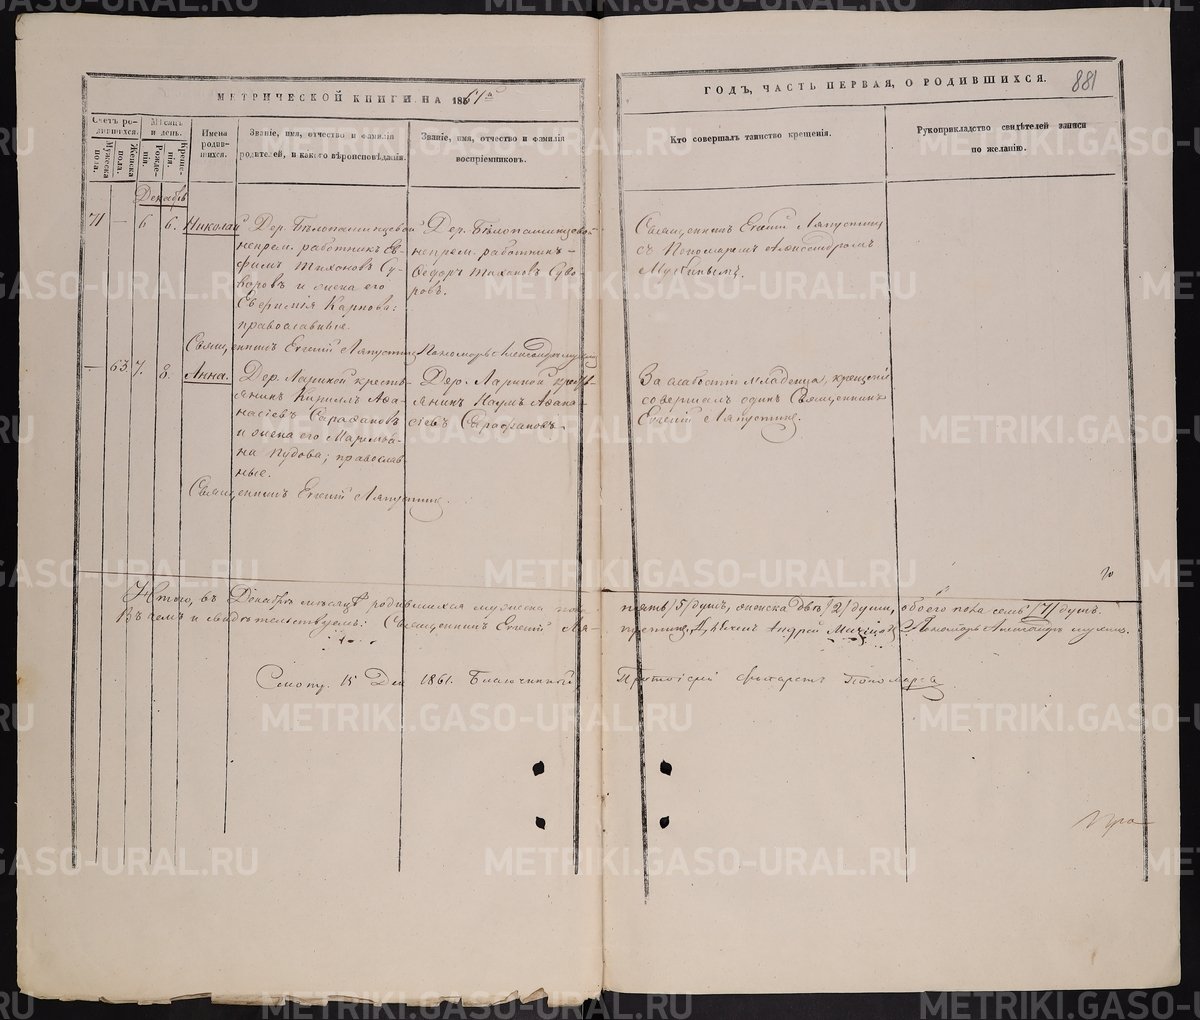 МЕТРИЧЕСКОЙ КНИГИ НА 1861й
ГОДЪ, ЧАСТЬ ПЕРВАЯ, О РОДИВШИХСЯ.
881
Счетъ родившихся.
Мужеска пола.
Женска пола.
Мѣсяцъ и день.
Рожденія.
Крещенія.
Имена родившихся.
Званіе, имя, отчество и фамилія
родителей, и какого вѣроисповѣданія.
Званіе, имя, отчество и фамилія
воспріемниковъ.
Кто совершалъ таинство крещенія.
Рукоприкладство свидѣтелей записи
по желанію.
Декабрь
71 — 6 6. Николай
Дер. Бѣлопашинцевой
непрем. работникъ Ев-
фимъ Тихоновъ Су-
воровъ и жена его
Евфимія Карпова;
православные.
Дер. Бѣлопашинцевой
непрем. работникъ
Ѳедоръ Тихоновъ Суво-
ровъ.
Священникъ Евгеній Ляпустинъ
съ Пономаремъ Александромъ
Священникъ Евгеній Ляпустинъ Пономарь Александръ
— 63 7. 8. Анна.
Дер. Лариной кресть-
янинъ Кириллъ Аѳа-
насіевъ Сарафановъ
и жена его Маремья-
на Пудова; православ-
ные.
Дер. Лариной кресть-
янинъ Наумъ Аѳана-
сіевъ Сарафановъ.
За слабостію младенца, крещеніе
совершалъ одинъ Священникъ
Евгеній Ляпустинъ.
Священникъ Евгеній Ляпустинъ.
Итого, въ Декабрѣ мѣсяцѣ родившихся мужеска пола пять /5/ душъ, женска двѣ /2/ души, обоего пола семь /7/ душъ.
Въ чемъ и свидѣтельствуемъ: Священникъ Евгеній Ля-
пустинъ, Андрей Пономарь Александръ
15 Дня 1861. Благочинный Протоіерей Пономаревъ
METRIKI.GASO-URAL.RU